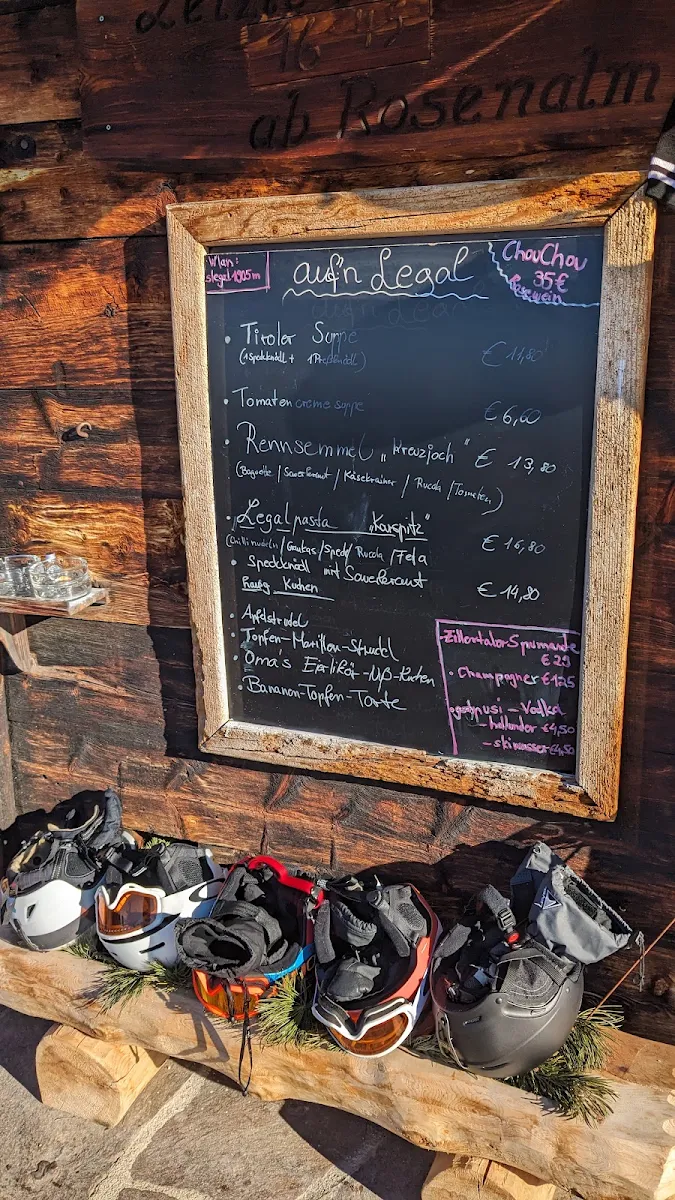 Letzte
16
ab Rosenalm
Wlan:
slegal1905m
auf'n Legal
ChouChou
35€
Rosewein
• Tiroler Suppe
(1 Speckknödl + 1 Preßknödl)
€ 11,80
• Tomatencremesuppe
€ 6,60
• Rennsemmel „Kreuzjoch"
€ 13,80
(Baguette / Sauerkraut / Käsekrainer / Rucola / Tomaten)
• Legalpasta „Karspitz"
(Chillinudeln / Gambas / Speck / Rucola / Feta
€ 16,80
• Speckknödl mit Sauerkraut
€ 14,80
Kuchen
• Apfelstrudel
• Topfen-Marillen-Strudel
• Oma's Eierlikör-Nuß-Kuchen
• Bananen-Topfen-Torte
Zillertaler Spumante
€ 29
• Champagner €125
• gschpusi - Vodka
- hollunder €4,50
- skiwasser €4,50